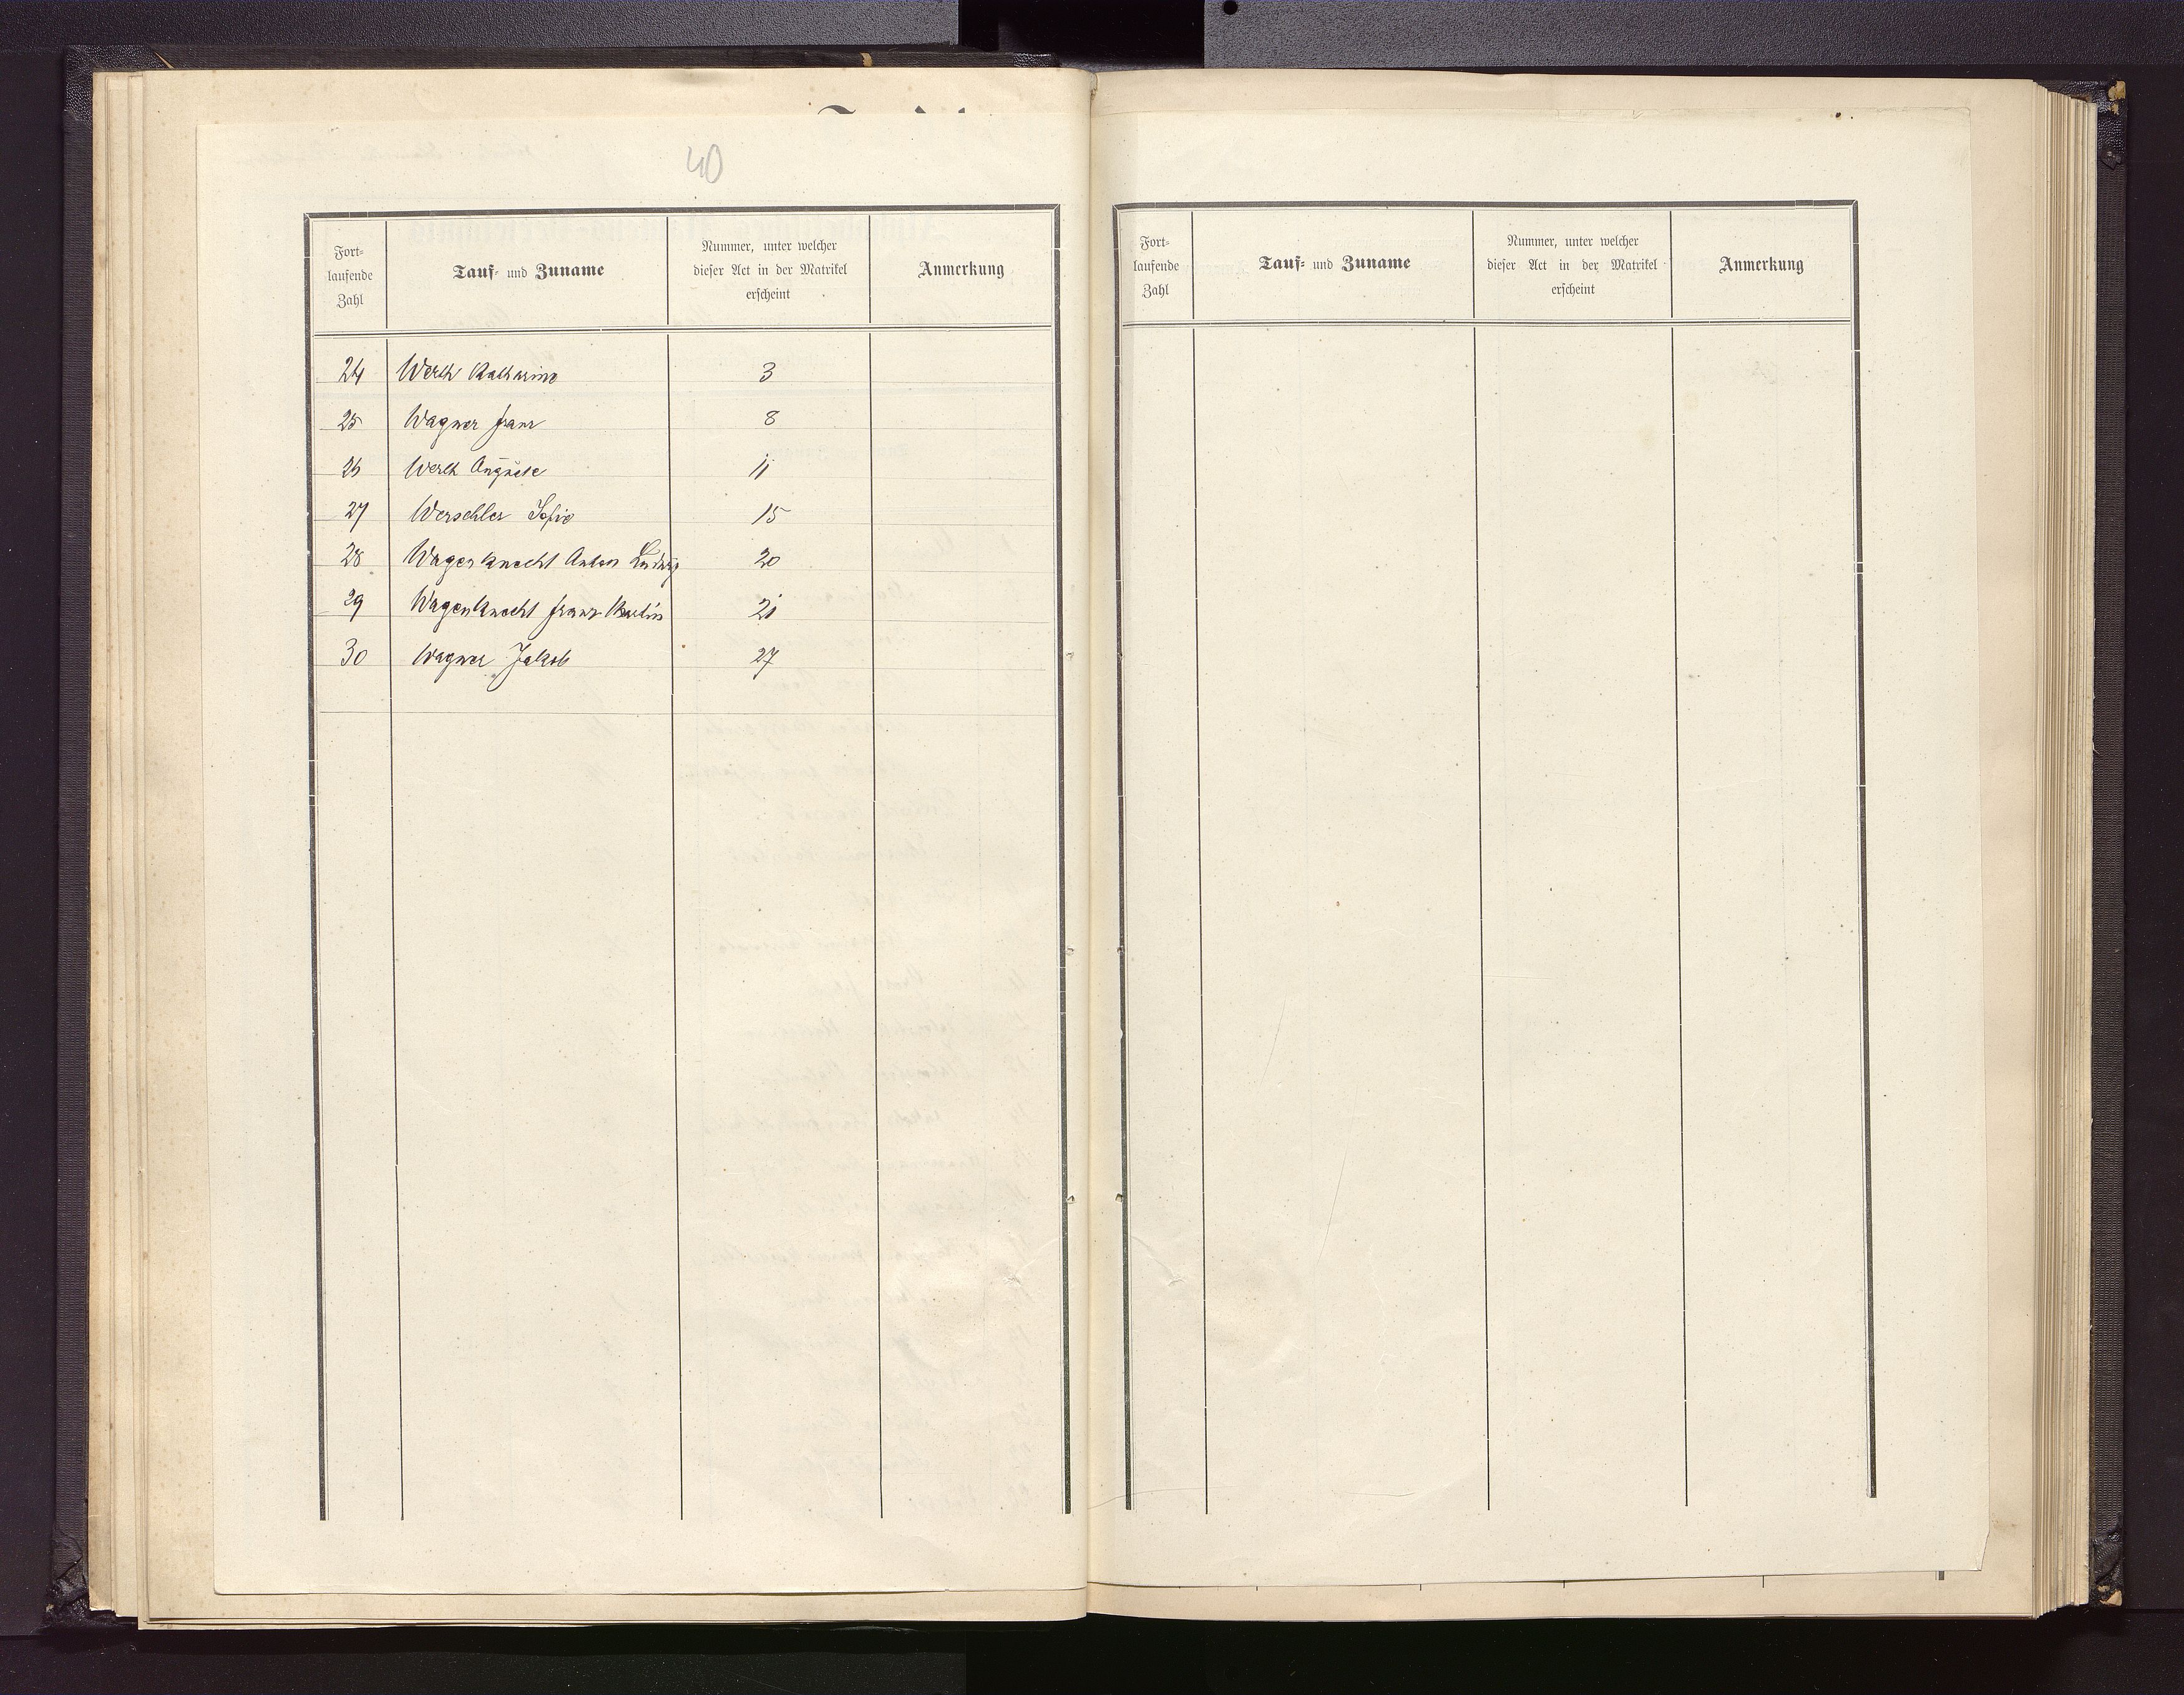 40
Fort-
laufende
Zahl
Tauf- und Zuname
Nummer, unter welcher
dieser Act in der Matrikel
erscheint
Anmerkung
24 Werth Katharina 3
25 Wagner Franz 8
26 Werth Auguste 11
27 Werschler Sofie 15
28 Wagenknecht Anton Ludwig 20
29 Wagenknecht Franz Martin 21
30 Wagner Jakob 27
Fort-
laufende
Zahl
Tauf- und Zuname
Nummer, unter welcher
dieser Act in der Matrikel
erscheint
Anmerkung